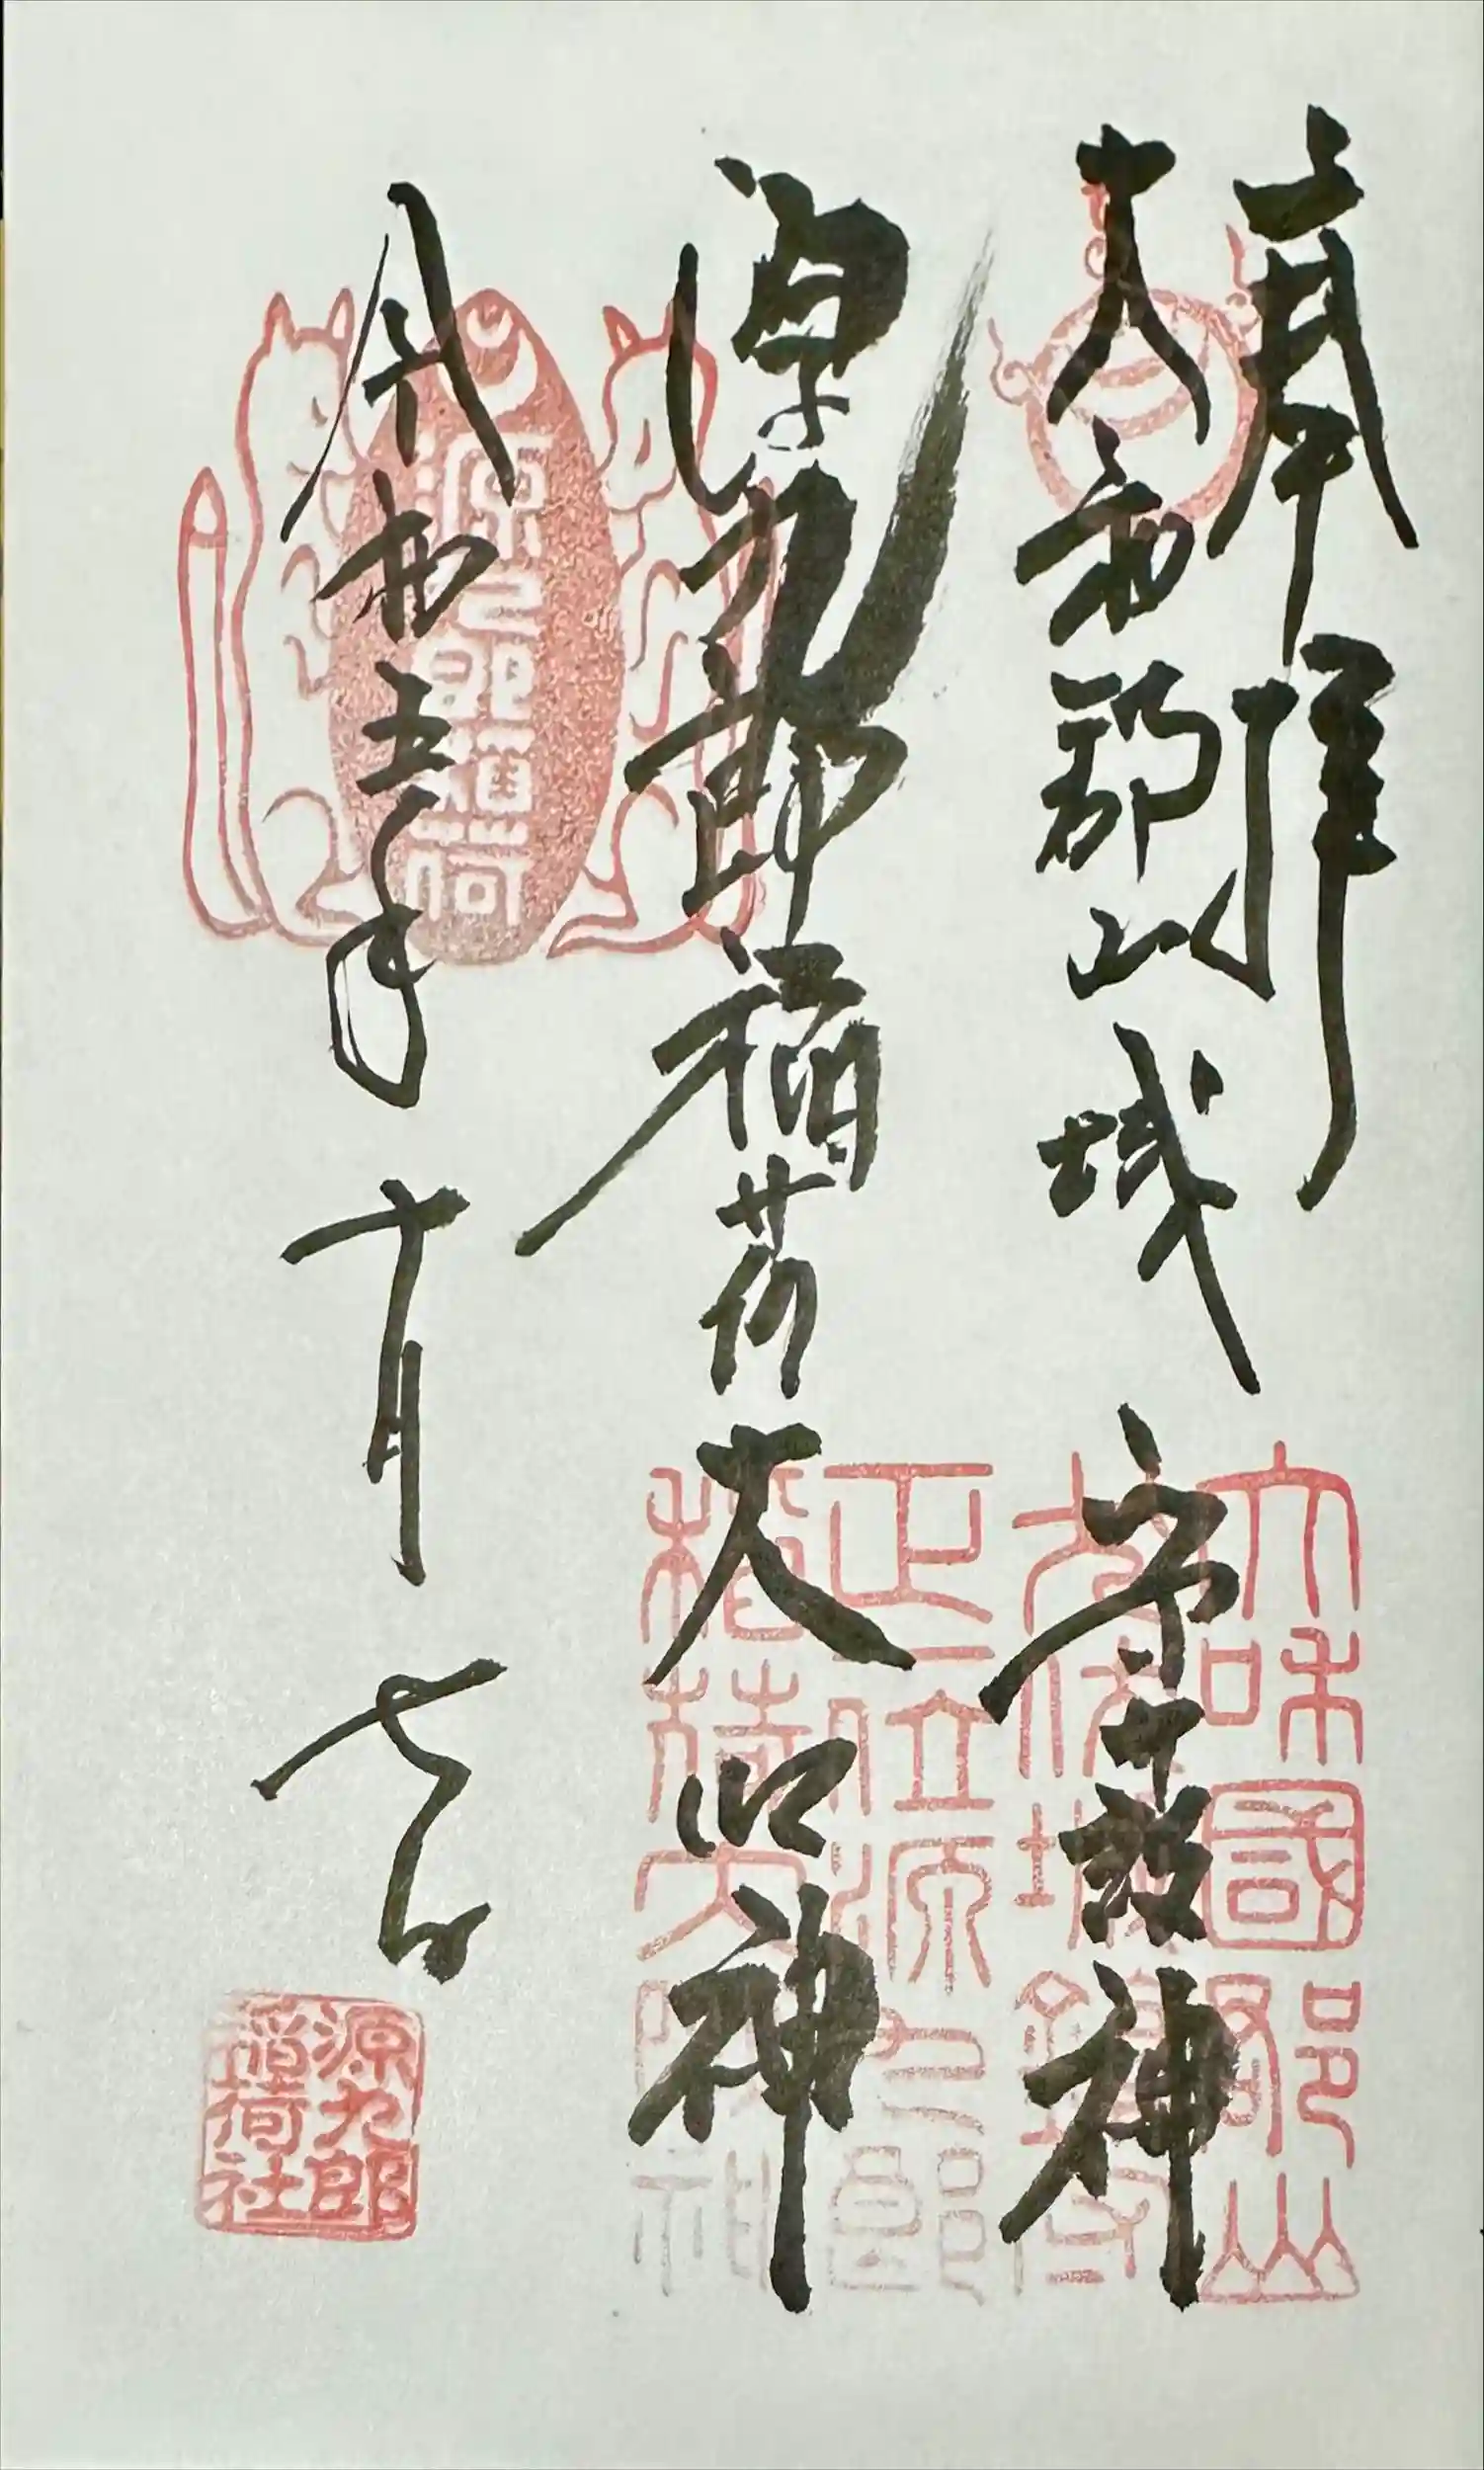 奉拝
大和郡山城 守護神
源九郎稲荷大明神
令和五年 十月 七日
源九郎稲荷
大和國郡山
正一位源九郎
稲荷大明神
源九郎
稲荷社